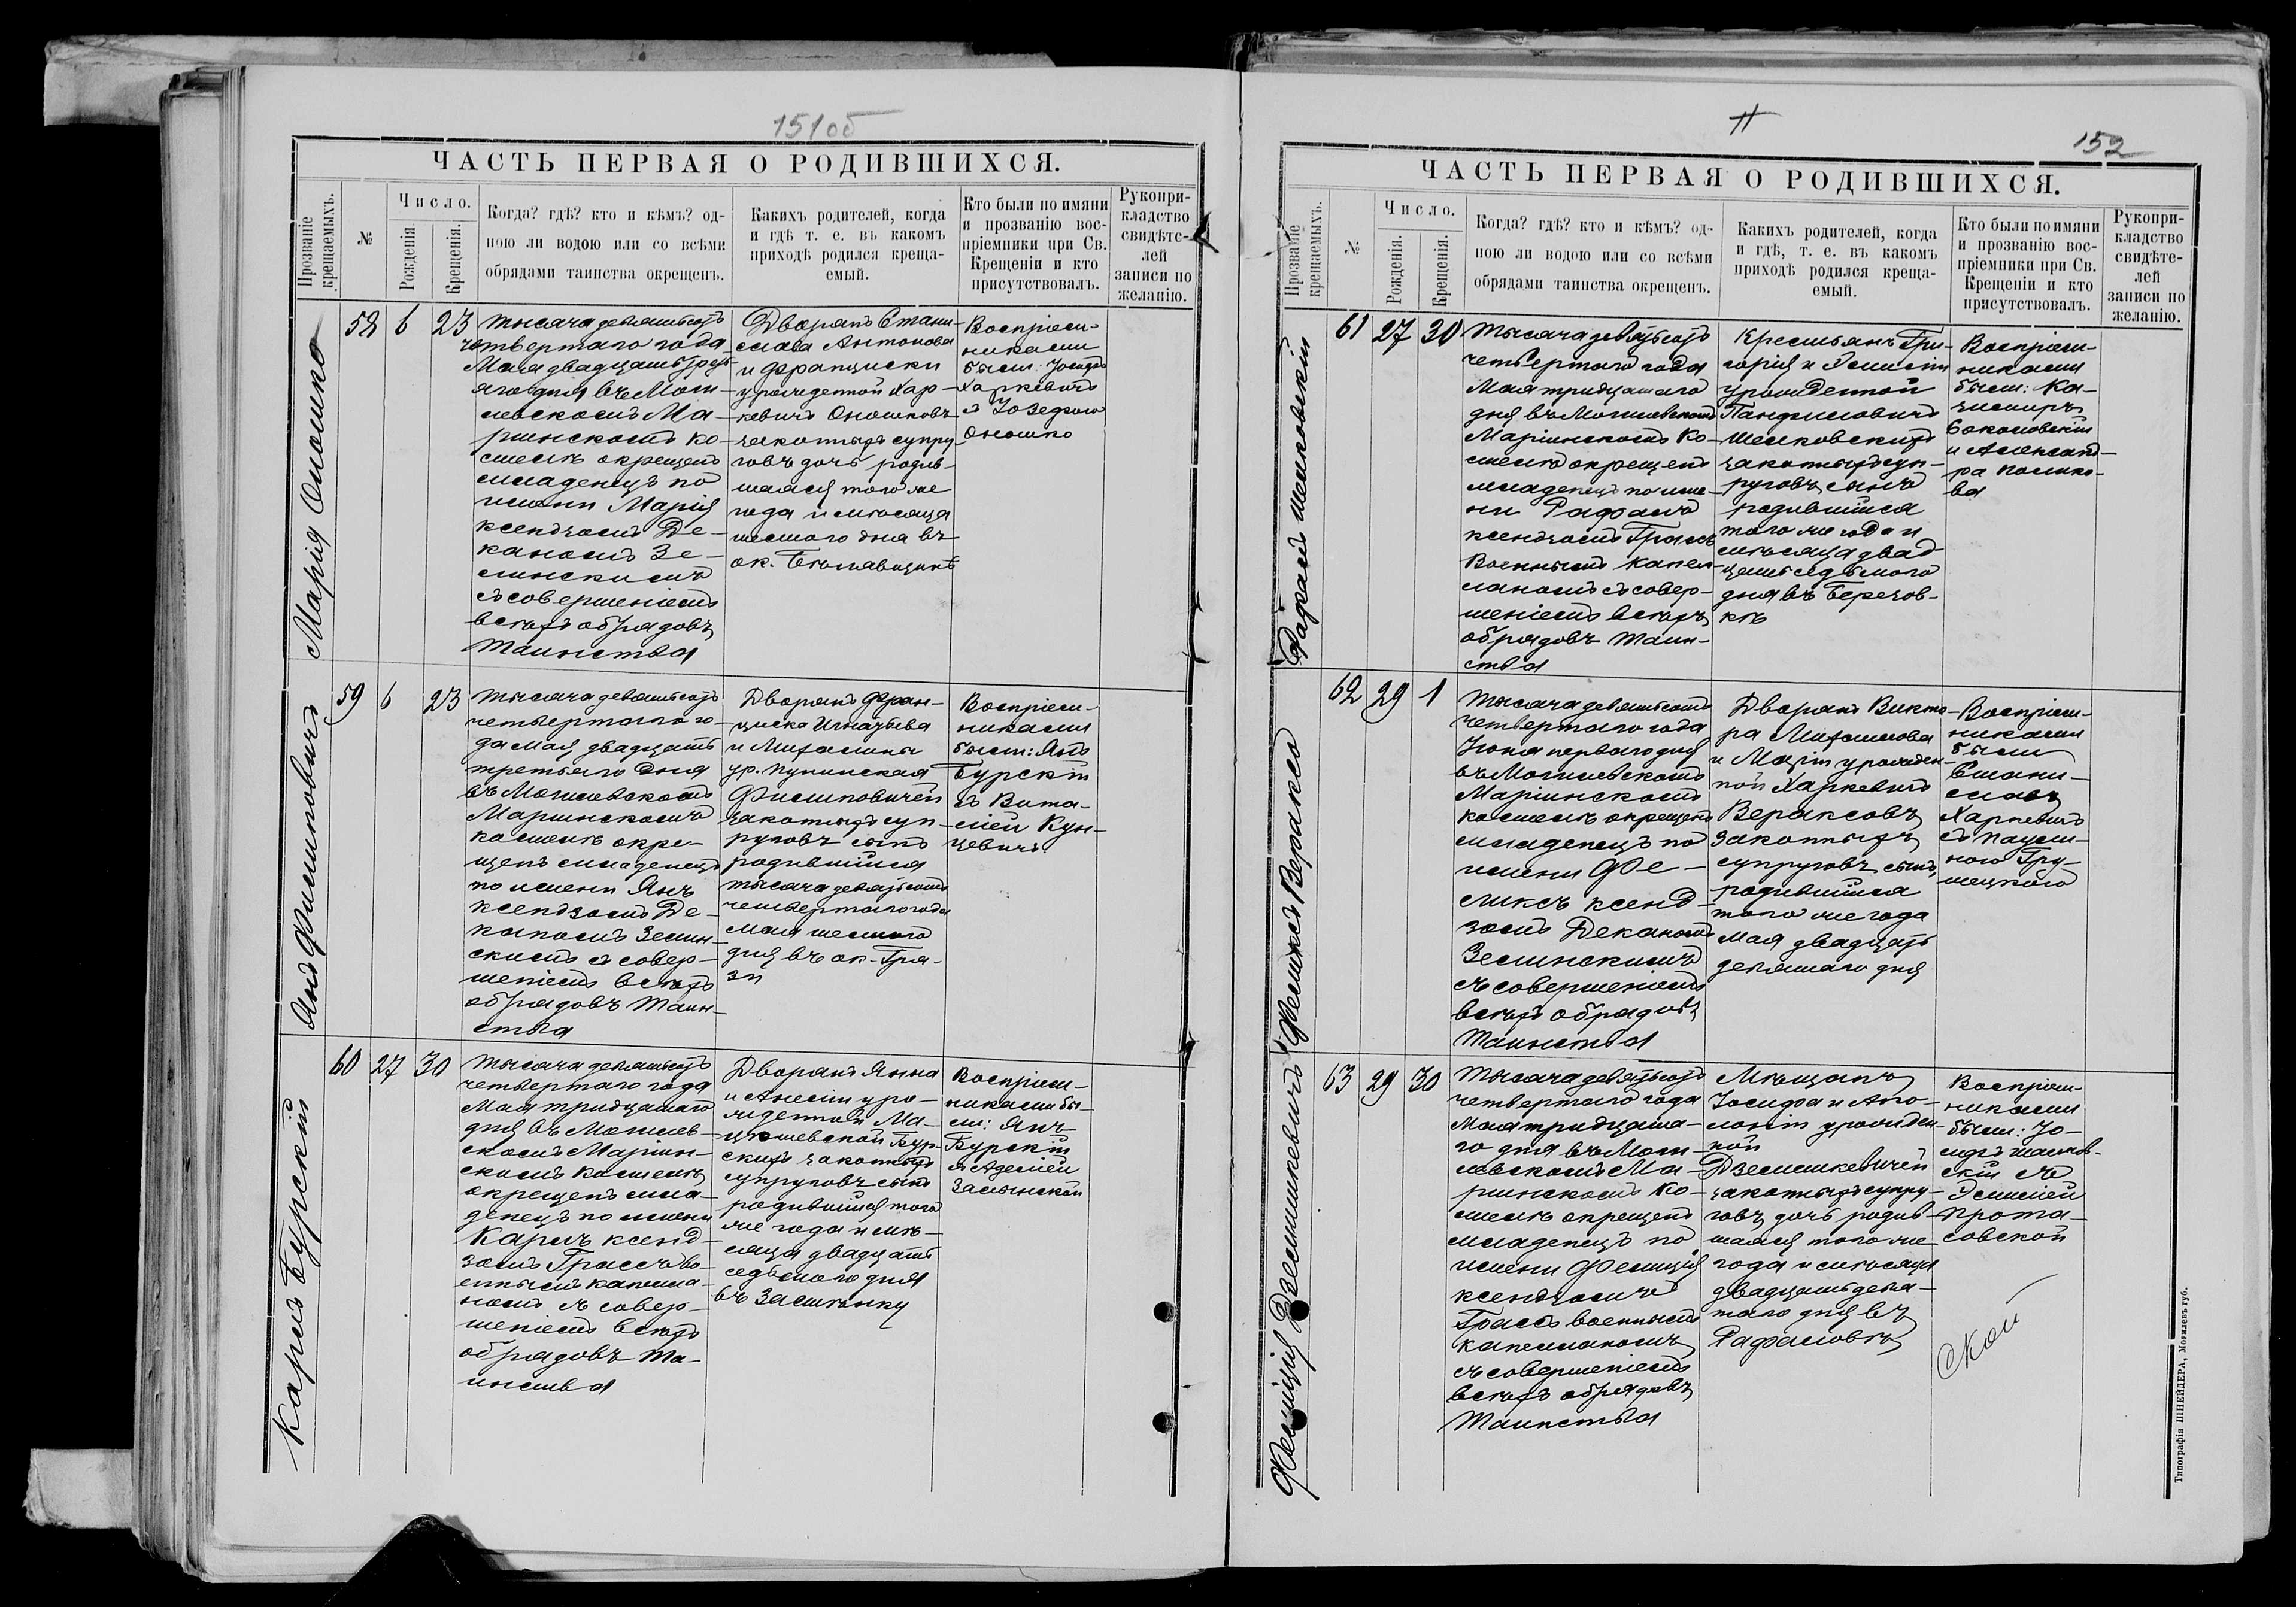 151об
ЧАСТЬ ПЕРВАЯ О РОДИВШИХСЯ.
Прозваніе крещаемыхъ.
№
Число.
Рожденія.
Крещенія.
Когда? гдѣ? кто и кѣмъ? од-
ною ли водою или со всѣми
обрядами таинства окрещенъ.
Какихъ родителей, когда
и гдѣ т. е. въ какомъ
приходѣ родился креща-
емый.
Кто были по имяни
и прозванію вос-
пріемники при Св.
Крещеніи и кто
присутствовалъ.
Рукопри-
кладство
свидѣте-
лей
записи по
желанію.
Марія Оношко
58 6 23
тысяча девятьсотъ
четвертаго года
Мая двадцать треть-
яго дня въ Моги-
левскомъ Ма-
ріинскомъ ко-
стелѣ окрещенъ
младенецъ по
имени Марія
ксендзомъ Де-
каномъ Зе-
линскимъ
съ совершеніемъ
всѣхъ обрядовъ
Таинства
Дворянъ Стани-
слава Антонова
и Францишки
урожденной Хар-
кевичъ Оношковъ
законныхъ супру
говъ дочь родив-
шаяся того же
года и мѣсяца
шестого дня въ
ок.
Воспріем-
никами
были: Іосифъ
Харкевичъ
съ Іозефою
Оношко
Янъ Филиповичъ
59 6 23
тысяча девятьсотъ
четвертаго го-
да Мая двадцать
третьяго дня
въ Могилевскомъ
Маріинскомъ
костелѣ окре-
щенъ младенецъ
по имени Янъ
ксендзомъ Де-
каномъ Зелин-
скимъ съ совер-
шеніемъ всѣхъ
обрядовъ Таин-
ства
Дворянъ Фран-
циска Игнатьева
и Михалины
ур. Пупинская
Филиповичей
законныхъ суп-
руговъ сынъ
родившійся
тысяча девятьсотъ
четвертаго года
Мая шестого
дня въ ок. Гря-
зи
Воспріем-
никами
были: Янъ
Бурскій
съ Вита-
ліей Кун-
цевичъ
Карлъ Бурскій
60 27 30
Тысяча девятьсотъ
четвертаго года
Мая тридцатаго
дня въ Могилев-
скомъ Маріин-
скомъ костелѣ
окрещенъ мла-
денецъ по имени
Карлъ ксенд-
зомъ Грассъ во-
еннымъ капелла-
номъ съ совер-
шеніемъ всѣхъ
обрядовъ Та-
инства
Дворянъ Янна
и Анеліи уро-
жденной Ма-
цюшевской Бур-
скихъ законныхъ
супруговъ сынъ
родившійся того
же года и мѣ-
сяца двадцать
седьмого дня
въ Застѣнку
Воспріем-
никами бы-
ли: Янъ
Бурскій
съ Аделіей
Залынской
152
ЧАСТЬ ПЕРВАЯ О РОДИВШИХСЯ.
Прозваніе крещаемыхъ.
№
Число.
Рожденія.
Крещенія.
Когда? гдѣ? кто и кѣмъ? од-
ною ли водою или со всѣми
обрядами таинства окрещенъ.
Какихъ родителей, когда
и гдѣ, т. е. въ какомъ
приходѣ родился креща-
емый.
Кто были по имяни
и прозванію вос-
пріемники при Св.
Крещеніи и кто
присутствовалъ.
Рукопри-
кладство
свидѣте-
лей
записи по
желанію.
Рафалъ Шелковскій
61 27 30
Тысяча девятьсотъ
четвертаго года
Мая тридцатаго
дня въ Могилевскомъ
Маріинскомъ Ко-
стелѣ окрещенъ
младенецъ по име-
ни Рафалъ
ксендзомъ Грассъ
Военнымъ капел-
ланомъ съ совер-
шеніемъ всѣхъ
обрядовъ Таин-
ства
Крестьянъ Гри-
горія и Эмиліи
урожденной
Панфиловичъ
Шелковскихъ
законныхъ суп-
руговъ сынъ
родившійся
того же года и
мѣсяца двад-
цать седьмого
дня въ Березов-
кѣ
Воспріем-
никами
были: Ка-
зимиръ
Соколовскій
и Александ-
ра Полико-
ва
Феликсъ Веракса
62 29 1
Тысяча девятьсотъ
четвертаго года
Іюня перваго дня
въ Могилевскомъ
Маріинскомъ
костелѣ окрещенъ
младенецъ по
имени Фе-
ликсъ ксенд-
зомъ Деканомъ
Зелинскимъ
съ совершеніемъ
всѣхъ обрядовъ
Таинства
Дворянъ Викто-
ра Михаилова
и Маріи урожден-
ной Харкевичъ
Вераксовъ
законныхъ
супруговъ сынъ
родившійся
того же года
Мая двадцать
девятаго дня
Воспріем-
никами
были
Стани-
славъ
Харкевичъ
съ Паули-
ною Гру-
шецкою
Фелиція Дземешкевичъ
63 29 30
Тысяча девятьсотъ
четвертаго года
Мая тридцата-
го дня въ Моги-
левскомъ Ма-
ріинскомъ Ко-
стелѣ окрещенъ
младенецъ по
имени Фелиція
ксендзомъ
Грассъ военнымъ
капелланомъ
съ совершеніемъ
всѣхъ обрядовъ
Таинства
Мѣщанъ
Іосифа и Апо-
лоніи урожден-
ной
Дземешкевичей
законныхъ супру-
говъ дочь родив-
шаяся того же
года и мѣсяца
двадцать девя-
таго дня въ
Рафаловѣ
Воспріем-
никами
были: Іо-
сифъ
скій съ
Эмиліей
Прота-
совской
Типографія ШНЕЙДЕРА, Могилевъ губ.